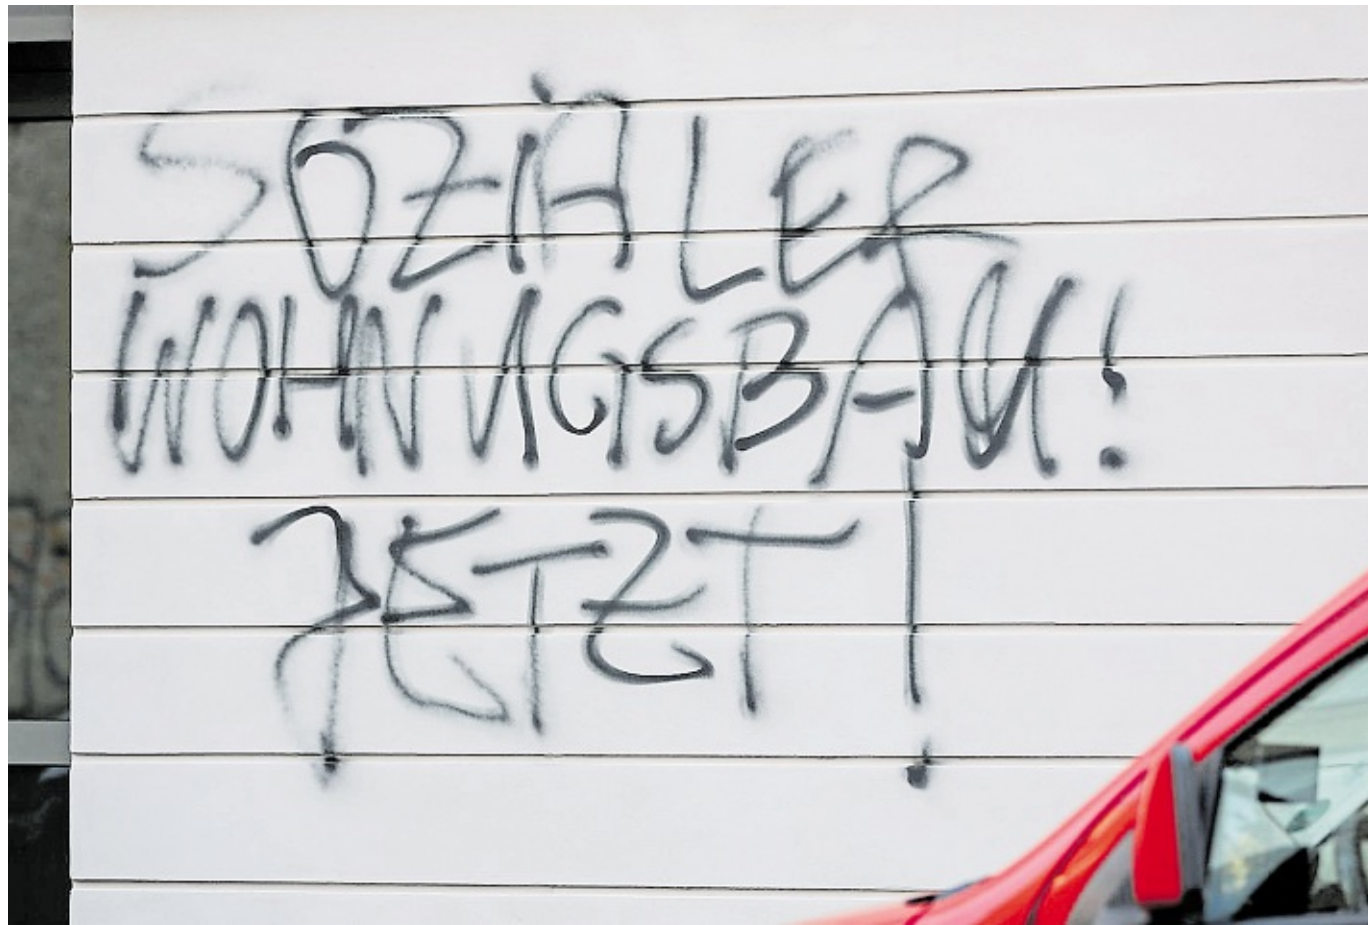 SOZIALER
WOHNUGSBAU!
JETZT!